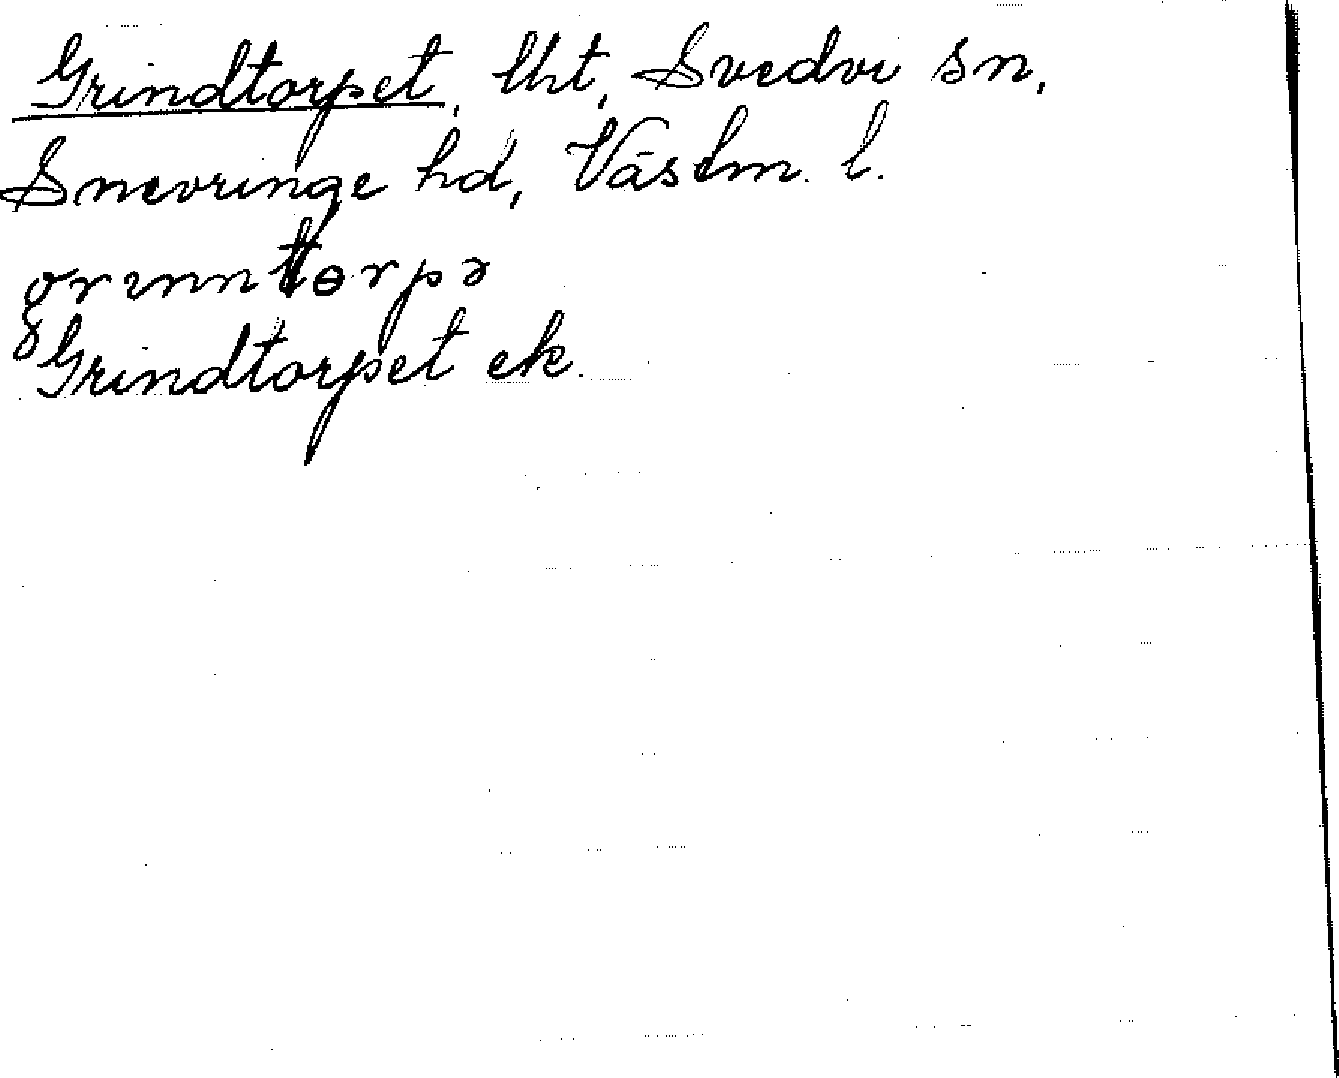 Grindtorpet, lht, Svedvi sn,
Snevringe hd, Västm. l.
grinntɵrpə
Grindtorpet ek.